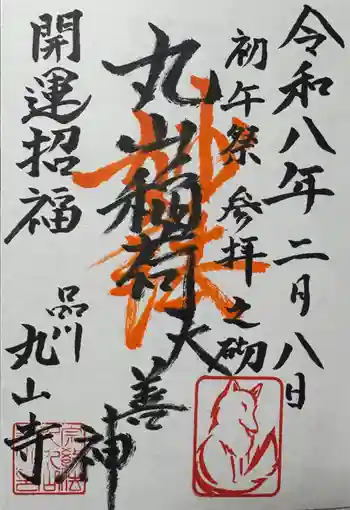 令和八年二月八日
初午祭参拝之砌
丸山稲荷大善神
妙法
開運招福
品川
丸山寺